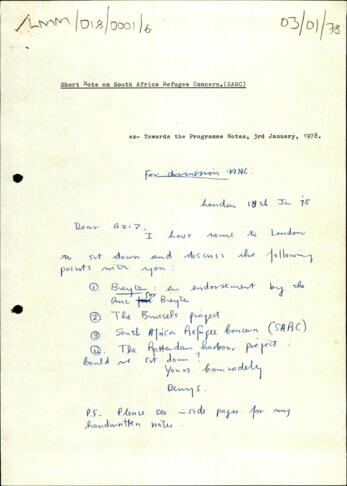 LMM/018/0001/6
03/01/78
Short Note on South Africa Refugee Concern.(SARC)
ex- Towards the Programme Notes, 3rd January, 1978.
For discussion ANC.
London 18th Jan 78
Dear Aziz,
I have come to London
to sit down and discuss the following
points with you:
① Breyten: an endorsement by the
ANC for Breyten
② The Brussels project
③ South Africa Refugee Concern (SARC)
④ The Rotterdam harbour project.
Could we sit down?
Yours comradely
Denys.
P.S. Please see inside pages for my
handwritten notes.